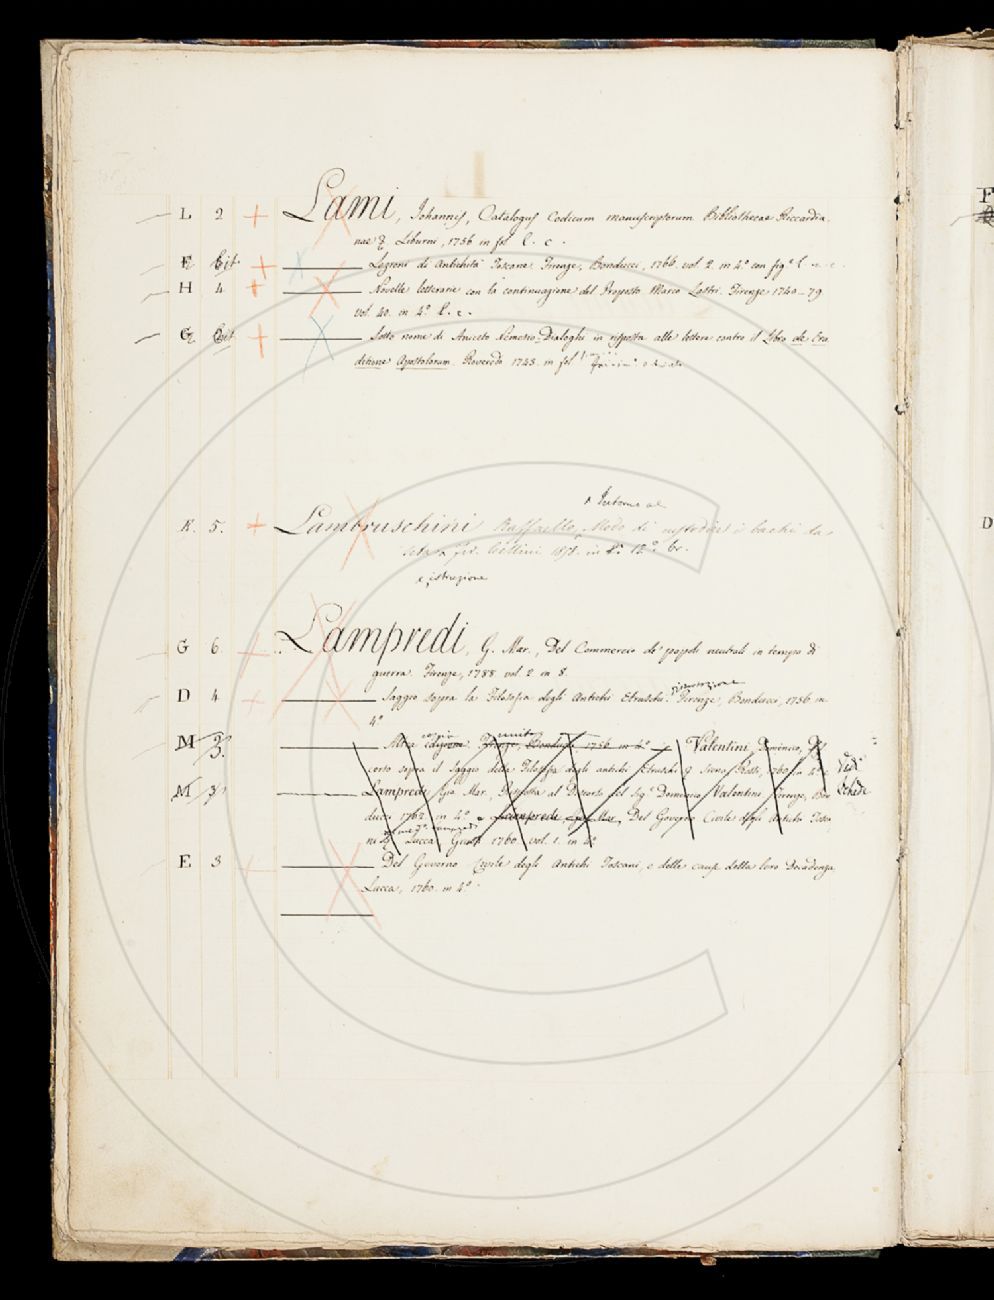 L 2 Lami, Johannis, Catalogus Codicum manuscriptorum Bibliothecae Riccardia-
nae & Liburni, 1756 in fol l. c.
E Bis Lezioni di Antichità Toscane Firenze, Bonducci, 1766 vol. 2. in 4.º con fig.e l.
H 4 Novelle letterarie con la continuazione del Proposto Marco Lastri. Firenze 1740-79
vol. 40. in 4.º l. c.
G Bis Sotto nome di Aniceto Nemesio Dialoghi in risposta alle lettere contro il Libro de Eru
ditione Apostolorum. Roveredo 1743. in fol
Intorno al
K. 5. Lambruschini Raffaello, Modo di custodire i bachi da
seta in 12.º br.
e istruzione
G 6 Lampredi, G. Mar., Del Commercio de' popoli neutrali in tempo di
guerra. Firenze, 1788. vol. 2 in 8.
D 4 Saggio sopra la Filosofia degli Antichi Etruschi. Firenze, Bonducci, 1756 in
4.º
M 2 Altra edizione. Firenze, Bonducci 1756 in 4.º Valentini, Dominico, Dis
3.
corso sopra il Saggio della Filosofia degli antichi Etruschi Siena Rossi, 1760 in 4.º
Vedi
Schede
M 3 Lampredi Gio. Mar., Risposta al Discorso del Sig.r Domenico Valentini Firenze, Bon
ducci 1762 in 4.º e Lampredi Gio. Mar. Del Governo Civile degli Antichi Tosca
ni Lucca, Giusti 1760. vol. 1. in 4.º
E 3 Del Governo Civile degli Antichi Toscani, e delle cause della loro Decadenza
Lucca, 1760. in 4.º
F
D